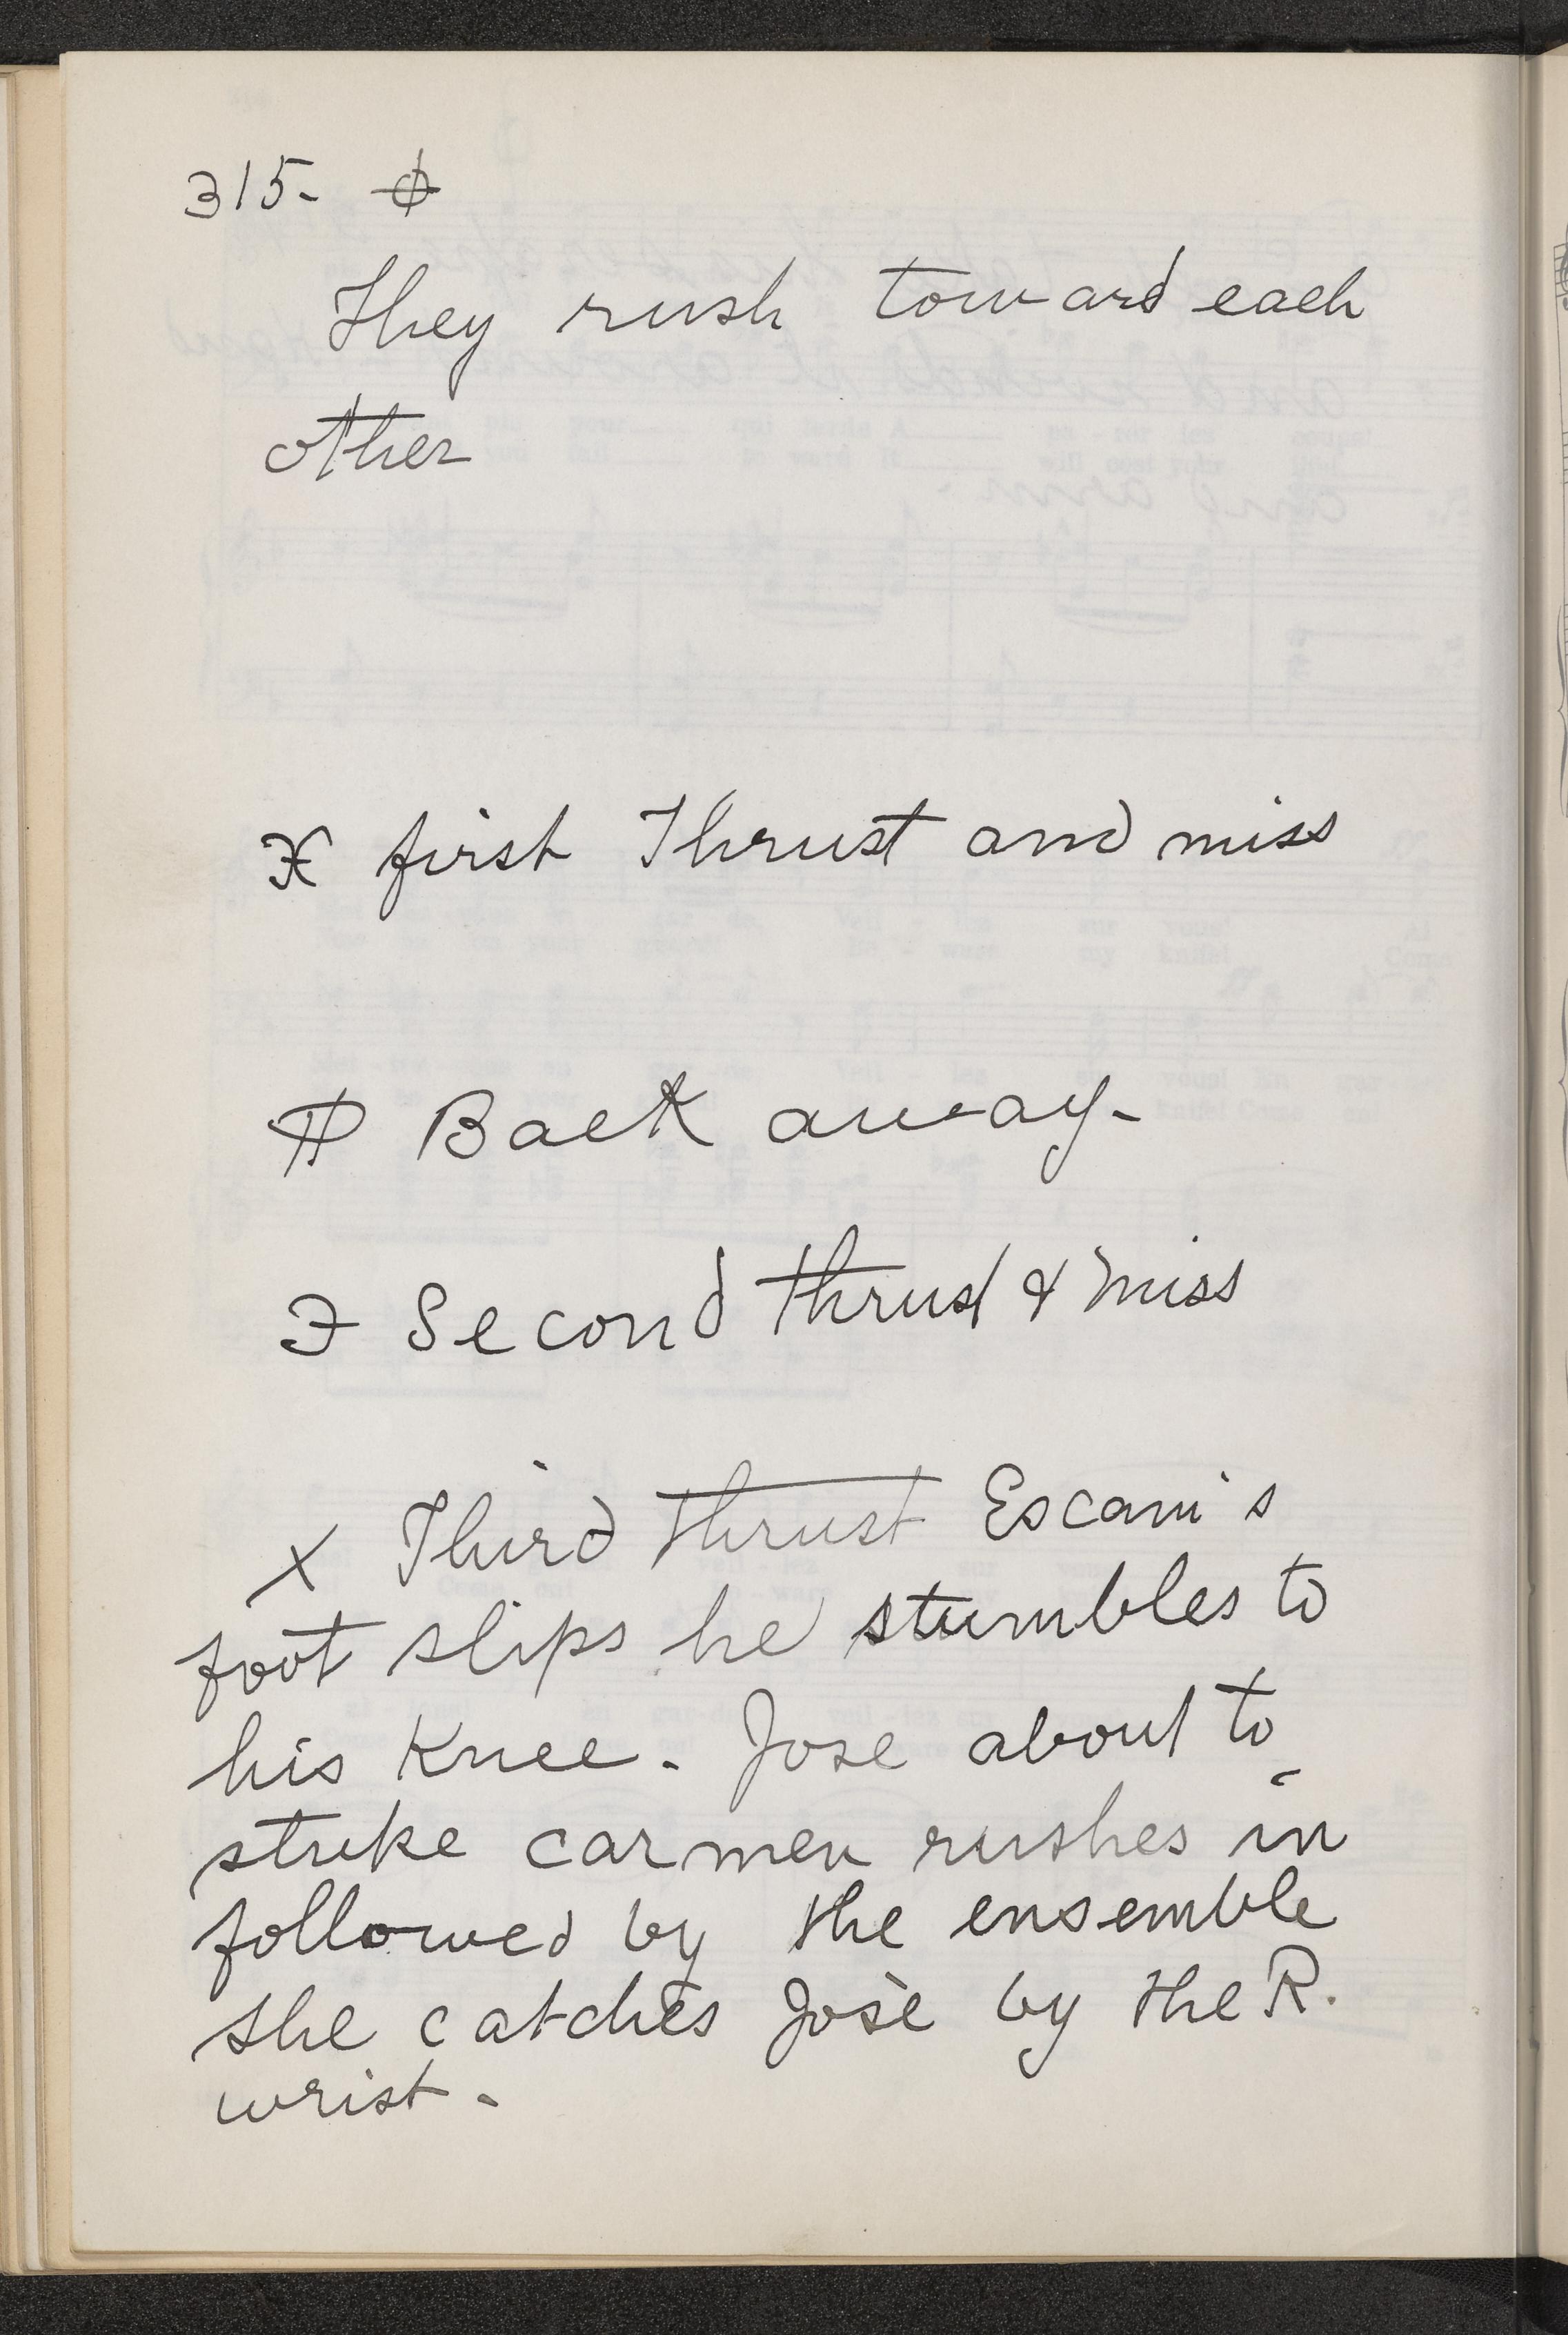 315-
They rush toward each
other
first Thrust and miss
Back away-
Second thrust & miss
x Third thrust Escami's
foot slips he stumbles to
his Knee. Jose about to
strike carmen rushes in
followed by the ensemble
she catches José by the R.
wrist.